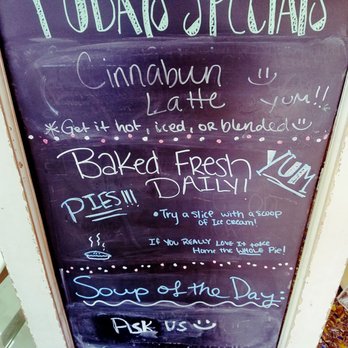 TODAYS SPECIALS
Cinnabun
Latte YUM!!
*Get it hot, iced, or blended
Baked Fresh
DAILY! YUM
PIES!!!
• Try a slice with a scoop
of Ice cream!
IF YOU REALLY LOVE IT take
Home the WHOLE Pie!
Soup of the Day:
Ask us